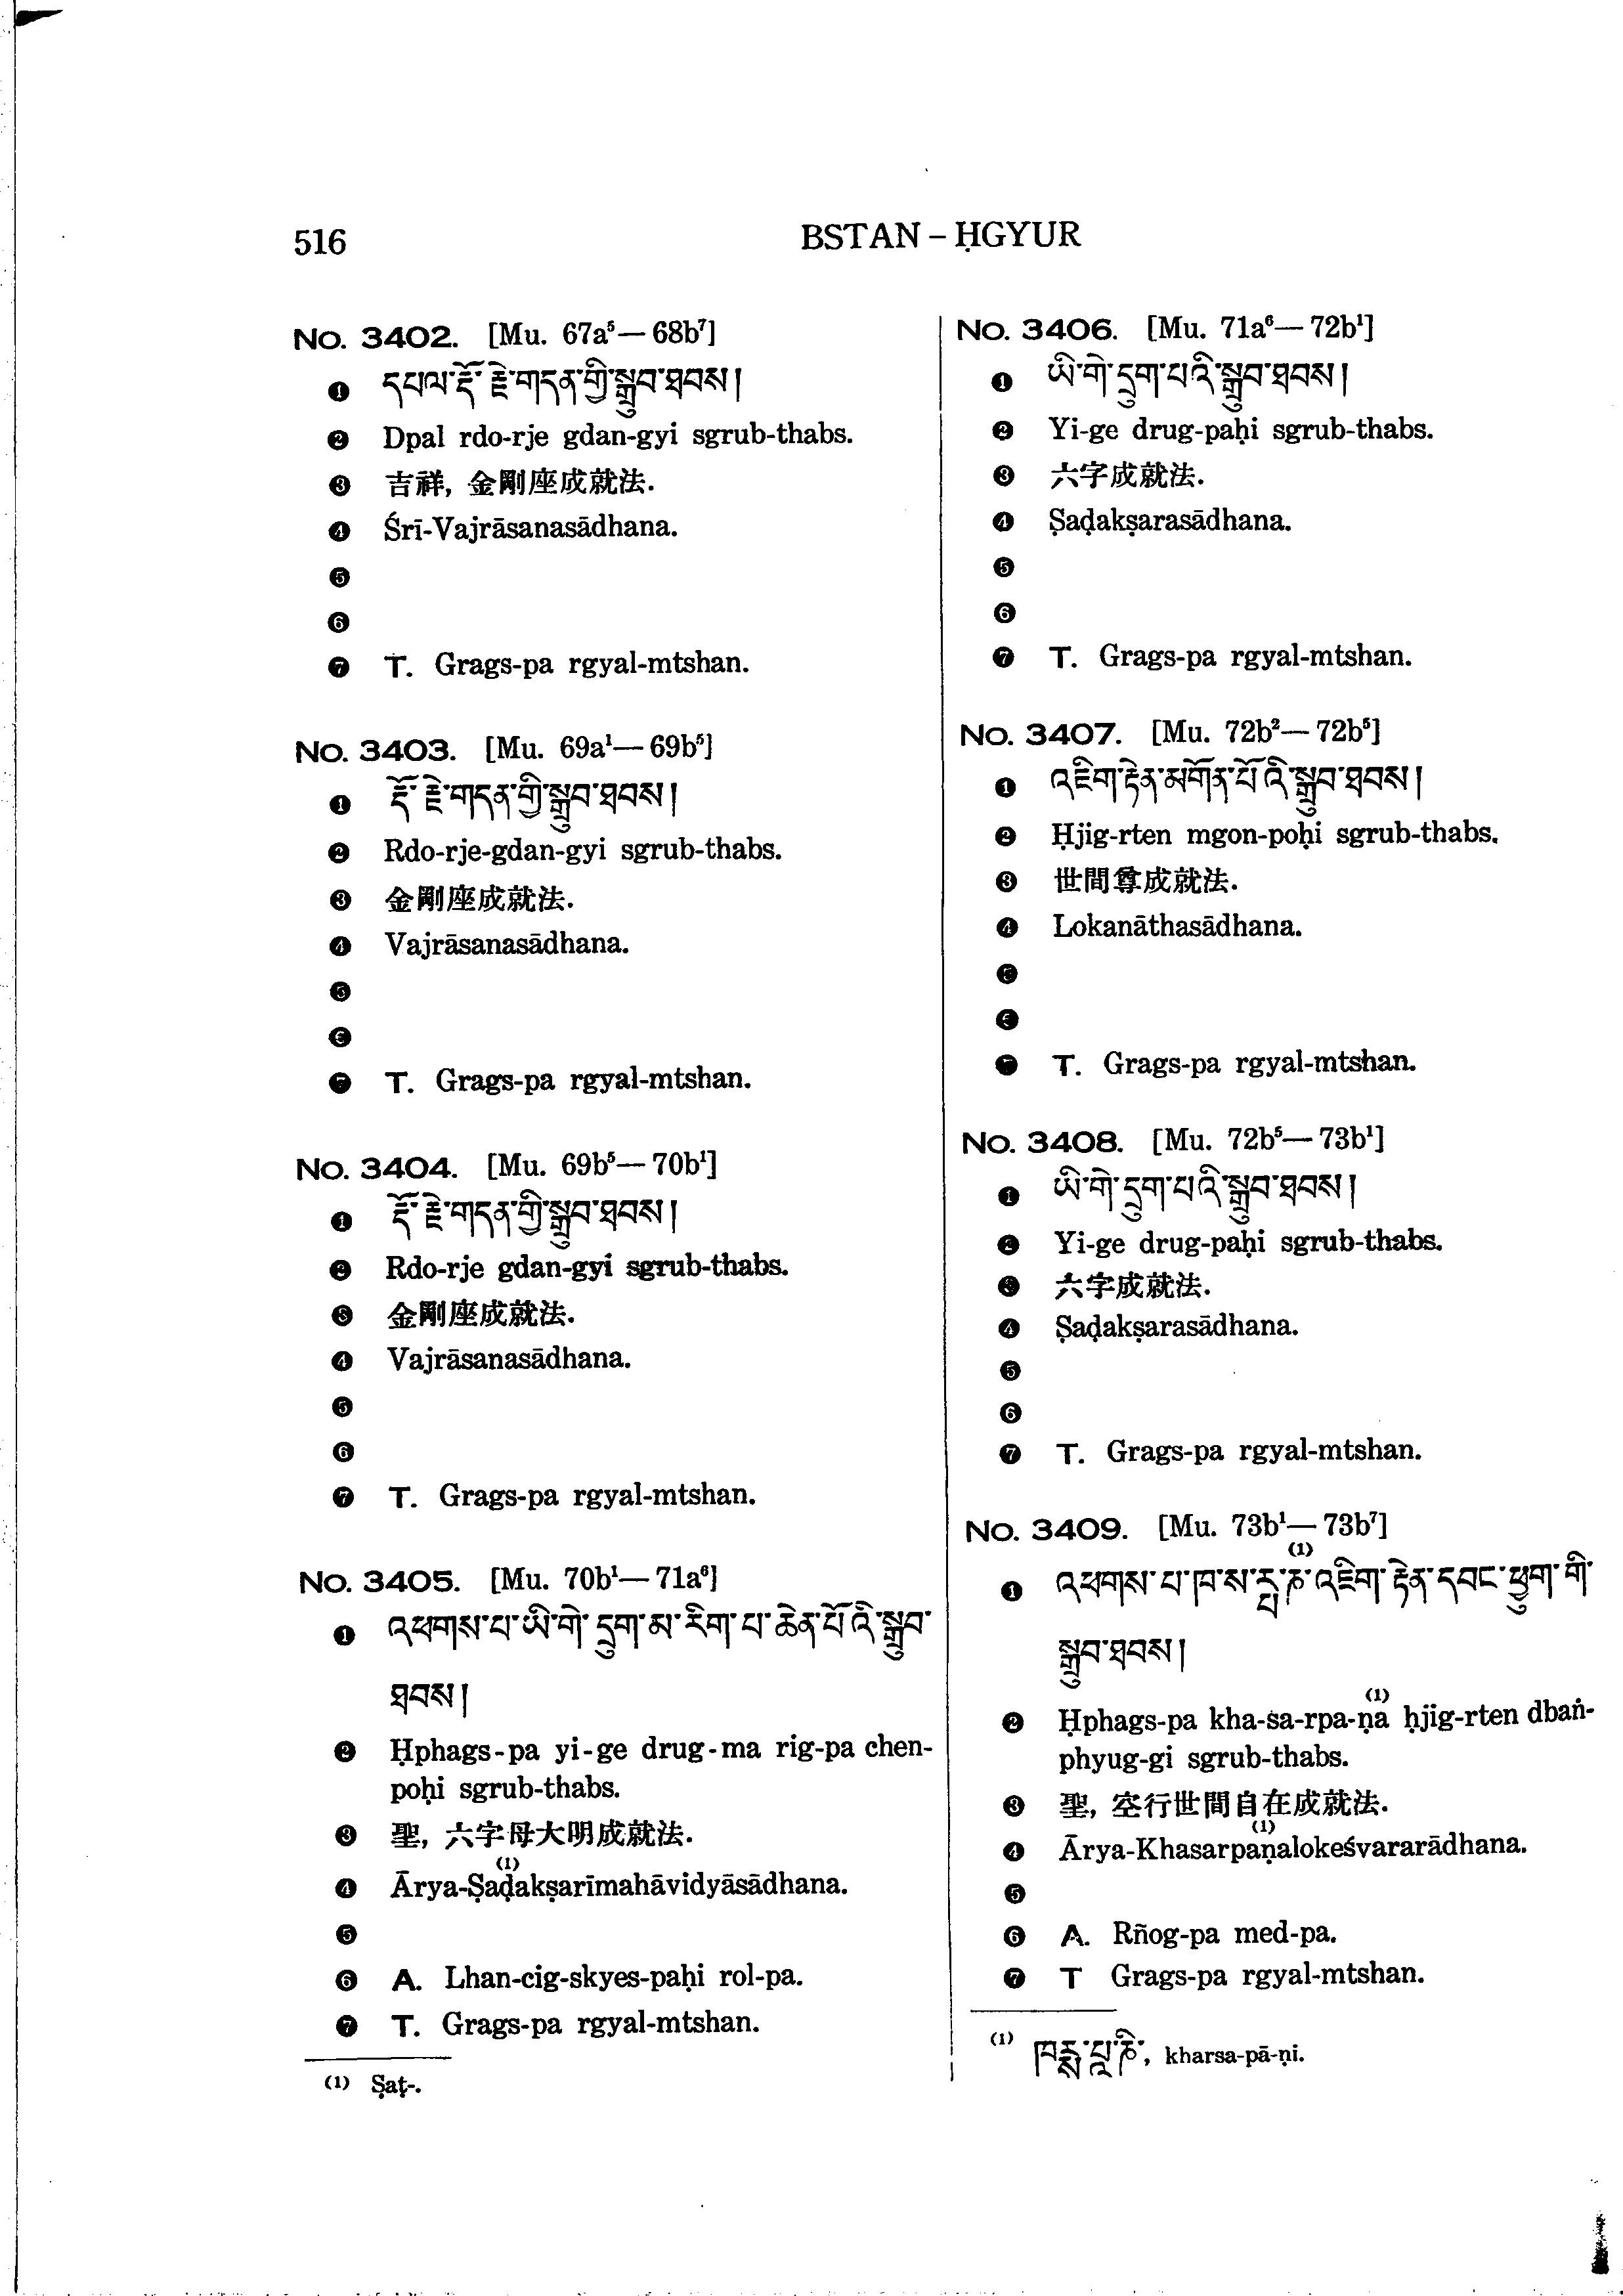 516
BSTAN – ḤGYUR
No. 3402. [Mu. 67a⁵— 68b⁷]
❶ དཔལ་རྡོ་རྗེ་གདན་གྱི་སྒྲུབ་ཐབས།
❷ Dpal rdo-rje gdan-gyi sgrub-thabs.
❸ 吉祥, 金剛座成就法.
❹ Śrī-Vajrāsanasādhana.
❺
❻
❼ T. Grags-pa rgyal-mtshan.
No. 3403. [Mu. 69a¹— 69b⁵]
❶ རྡོ་རྗེ་གདན་གྱི་སྒྲུབ་ཐབས།
❷ Rdo-rje-gdan-gyi sgrub-thabs.
❸ 金剛座成就法.
❹ Vajrāsanasādhana.
❺
❻
❼ T. Grags-pa rgyal-mtshan.
No. 3404. [Mu. 69b⁵— 70b¹]
❶ རྡོ་རྗེ་གདན་གྱི་སྒྲུབ་ཐབས།
❷ Rdo-rje gdan-gyi sgrub-thabs.
❸ 金剛座成就法.
❹ Vajrāsanasādhana.
❺
❻
❼ T. Grags-pa rgyal-mtshan.
No. 3405. [Mu. 70b¹— 71a⁶]
❶ འཕགས་པ་ཡི་གེ་དྲུག་མ་རིག་པ་ཆེན་པོའི་སྒྲུབ་
ཐབས།
❷ Ḥphags-pa yi-ge drug-ma rig-pa chen-
poḥi sgrub-thabs.
❸ 聖, 六字母大明成就法.
(1)
❹ Ārya-Ṣaḍakṣarīmahāvidyāsādhana.
❺
❻ A. Lhan-cig-skyes-paḥi rol-pa.
❼ T. Grags-pa rgyal-mtshan.
(1) Ṣaṭ-.
No. 3406. [Mu. 71a⁶— 72b¹]
❶ ཡི་གེ་དྲུག་པའི་སྒྲུབ་ཐབས།
❷ Yi-ge drug-paḥi sgrub-thabs.
❸ 六字成就法.
❹ Ṣaḍakṣarasādhana.
❺
❻
❼ T. Grags-pa rgyal-mtshan.
No. 3407. [Mu. 72b²— 72b⁵]
❶ འཇིག་རྟེན་མགོན་པོའི་སྒྲུབ་ཐབས།
❷ Ḥjig-rten mgon-poḥi sgrub-thabs.
❸ 世間尊成就法.
❹ Lokanāthasādhana.
❺
❻
❼ T. Grags-pa rgyal-mtshan.
No. 3408. [Mu. 72b⁵— 73b¹]
❶ ཡི་གེ་དྲུག་པའི་སྒྲུབ་ཐབས།
❷ Yi-ge drug-paḥi sgrub-thabs.
❸ 六字成就法.
❹ Ṣaḍakṣarasādhana.
❺
❻
❼ T. Grags-pa rgyal-mtshan.
No. 3409. [Mu. 73b¹— 73b⁷]
(1)
❶ འཕགས་པ་ཁ་ས་རྤ་ཎ་འཇིག་རྟེན་དབང་ཕྱུག་གི་
སྒྲུབ་ཐབས།
(1)
❷ Ḥphags-pa kha-sa-rpa-ṇa ḥjig-rten dbaṅ-
phyug-gi sgrub-thabs.
❸ 聖, 空行世間自在成就法.
(1)
❹ Ārya-Khasarpaṇalokeśvararādhana.
❺
❻ A. Rñog-pa med-pa.
❼ T Grags-pa rgyal-mtshan.
(1) ཁརྶ་པཱ་ཎི་, kharsa-pā-ṇi.